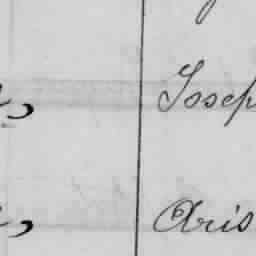 Josep
Aris